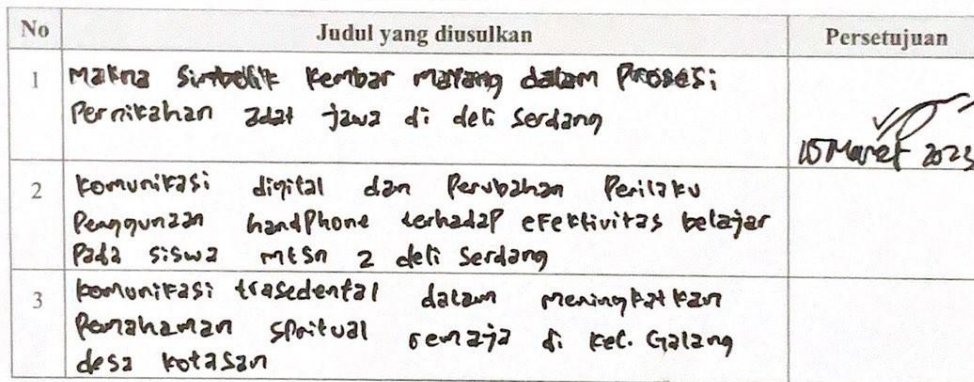 No Judul yang diusulkan Persetujuan
1 Makna Simbolik kembar mayang dalam Prosesi
Pernikahan adat jawa di deli Serdang
15 Maret 2023
2 komunikasi digital dan Perubahan Perilaku
Penggunaan handPhone terhadap efektivitas belajar
Pada siswa mtsn 2 deli Serdang
3 komunikasi trasedental dalam meningkatkan
Pemahaman spritual remaja di kec. Galang
desa kotasan